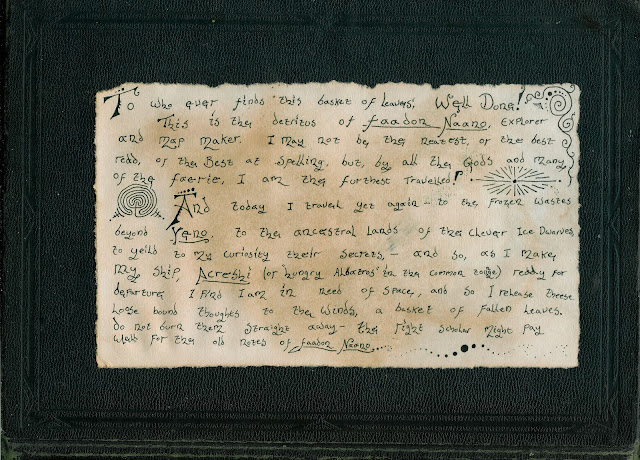 To who ever finds this basket of leaves; Well Done!
This is the detritus of faadon Naano, Explorer
and Map Maker. I may not be the neatest, or the best
redd, or the Best at Spelling, but, by all the Gods and many
of the faerie, I am the furthest Travelled!
And today I travel yet again - to the frozen wastes
beyond Yeno, to the ancestral lands of the Clever Ice Dwarves,
to yeild to my curiosity their secrets, - and so, as I make
my ship, Acreshi (or 'hungry Albatros' in the common tounge) reddy for
departure I find I am in need of space, and so I release these
loose bound thoughts to the winds, a basket of fallen leaves.
Do not burn them straight away - the right scholar might pay
well for the old notes of faadon Naano